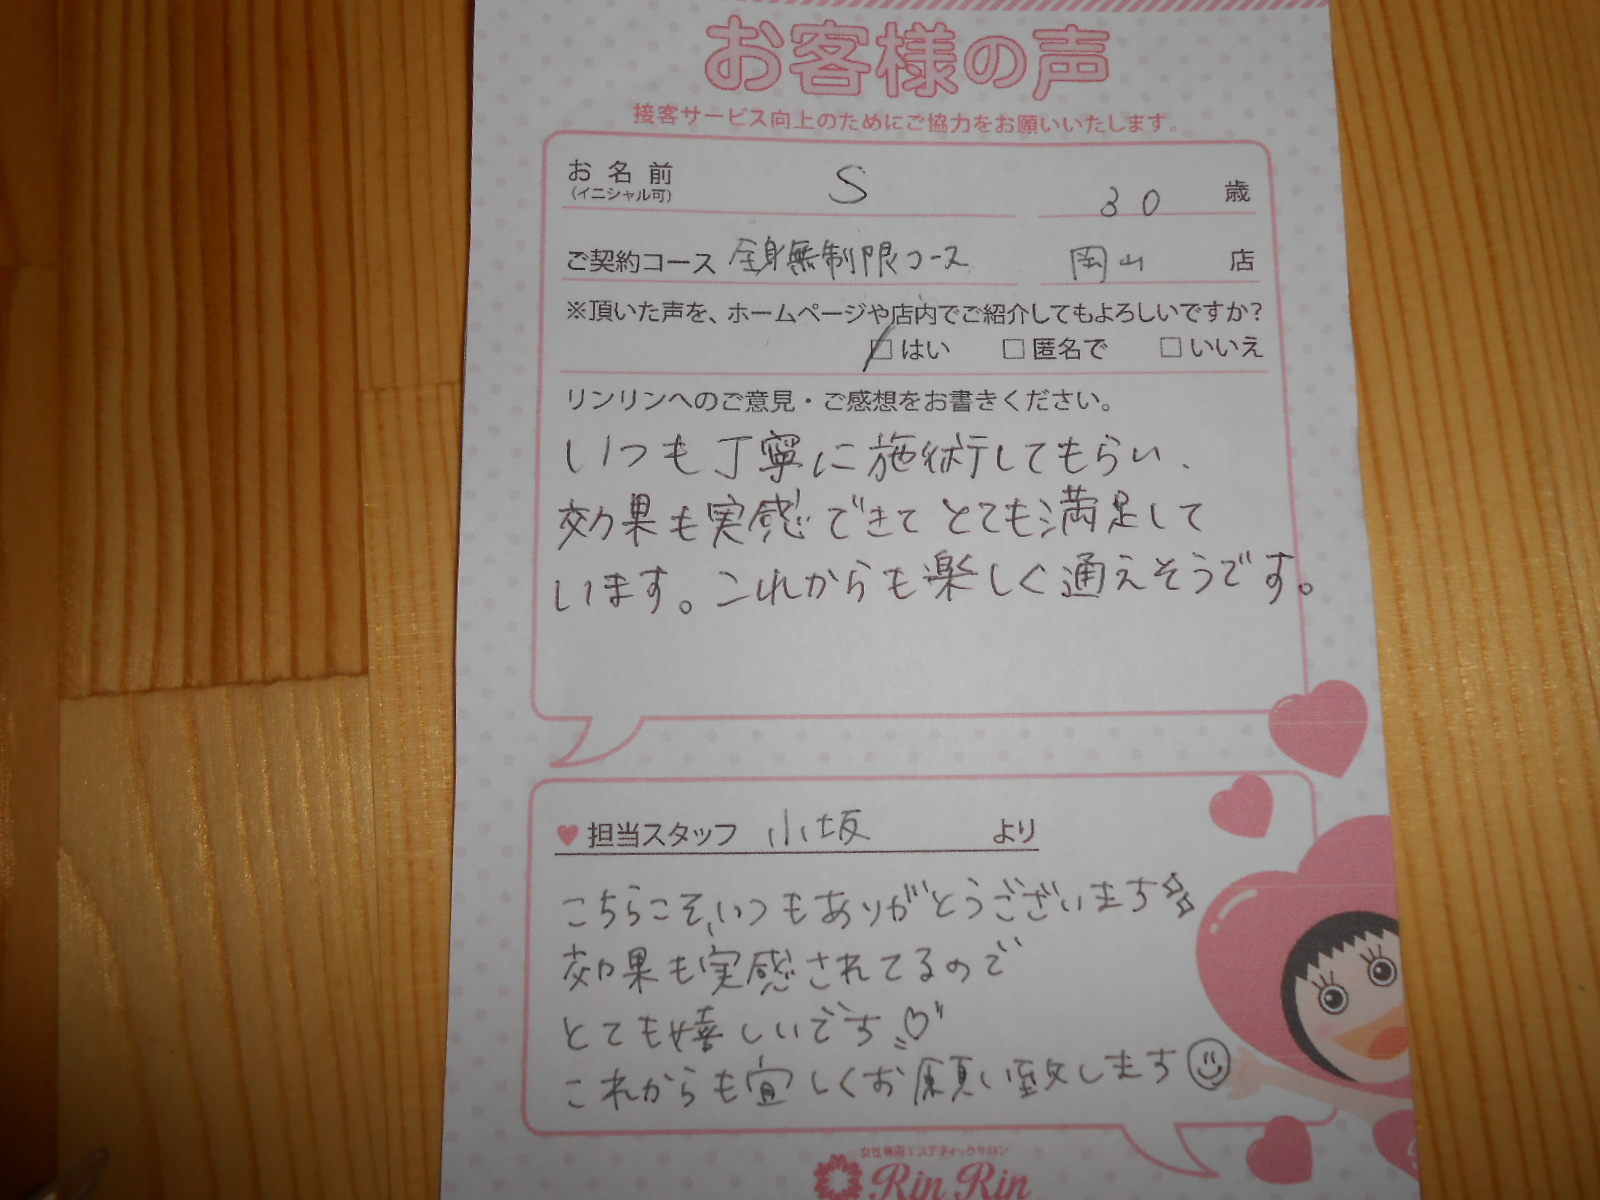 お客様の声
接客サービス向上のためにご協力をお願いいたします。
お名前 S 30 歳
(イニシャル可)
ご契約コース 全身無制限コース 岡山 店
※頂いた声を、ホームページや店内でご紹介してもよろしいですか?
□はい □匿名で □いいえ
リンリンへのご意見・ご感想をお書きください。
いつも丁寧に施術してもらい、
効果も実感できてとても満足して
います。これからも楽しく通えそうです。
♥担当スタッフ 小坂 より
こちらこそ、いつもありがとうございます
効果も実感されてるので
とても嬉しいです♡
これからも宜しくお願い致します
女性専用エステティックサロン
Rin Rin